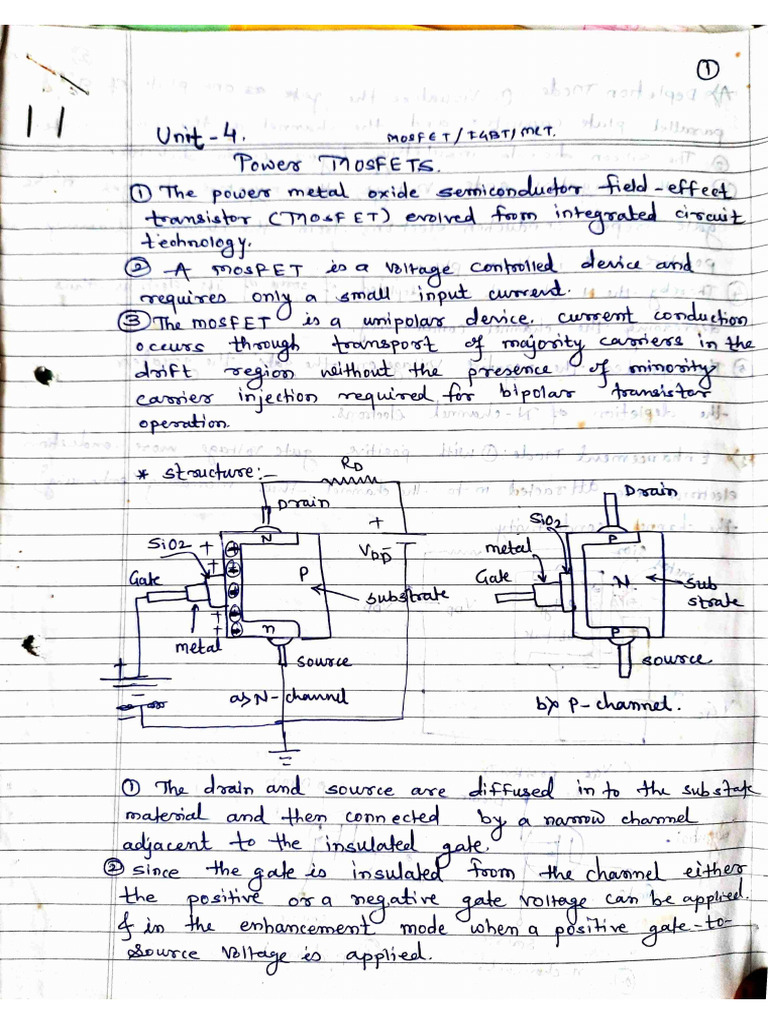 ①
11
Unit-4.
MOSFET/IGBT/MCT.
Power MOSFETS.
① The power metal oxide semiconductor field-effect
transistor (MOSFET) evolved from integrated circuit
technology.
② A MOSFET is a voltage controlled device and
requires only a small input current.
③ The MOSFET is a unipolar device. current conduction
occurs through transport of majority carriers in the
drift region without the presence of minority
carrier injection required for bipolar transistor
operation.
* structure:-
RD
Drain
N
SiO2
+
+
+
+
P
Gate
substrate
metal
n
source
+
VDD
+
-
a) N-channel
Drain
SiO2
P
metal
Gate
N
sub
strate
P
source
b) P-channel.
① The drain and source are diffused in to the substate
material and then connected by a narrow channel
adjacent to the insulated gate.
② since the gate is insulated from the channel either
the positive or a negative gate voltage can be applied.
& in the enhancement mode when a positive gate-to-
source voltage is applied.